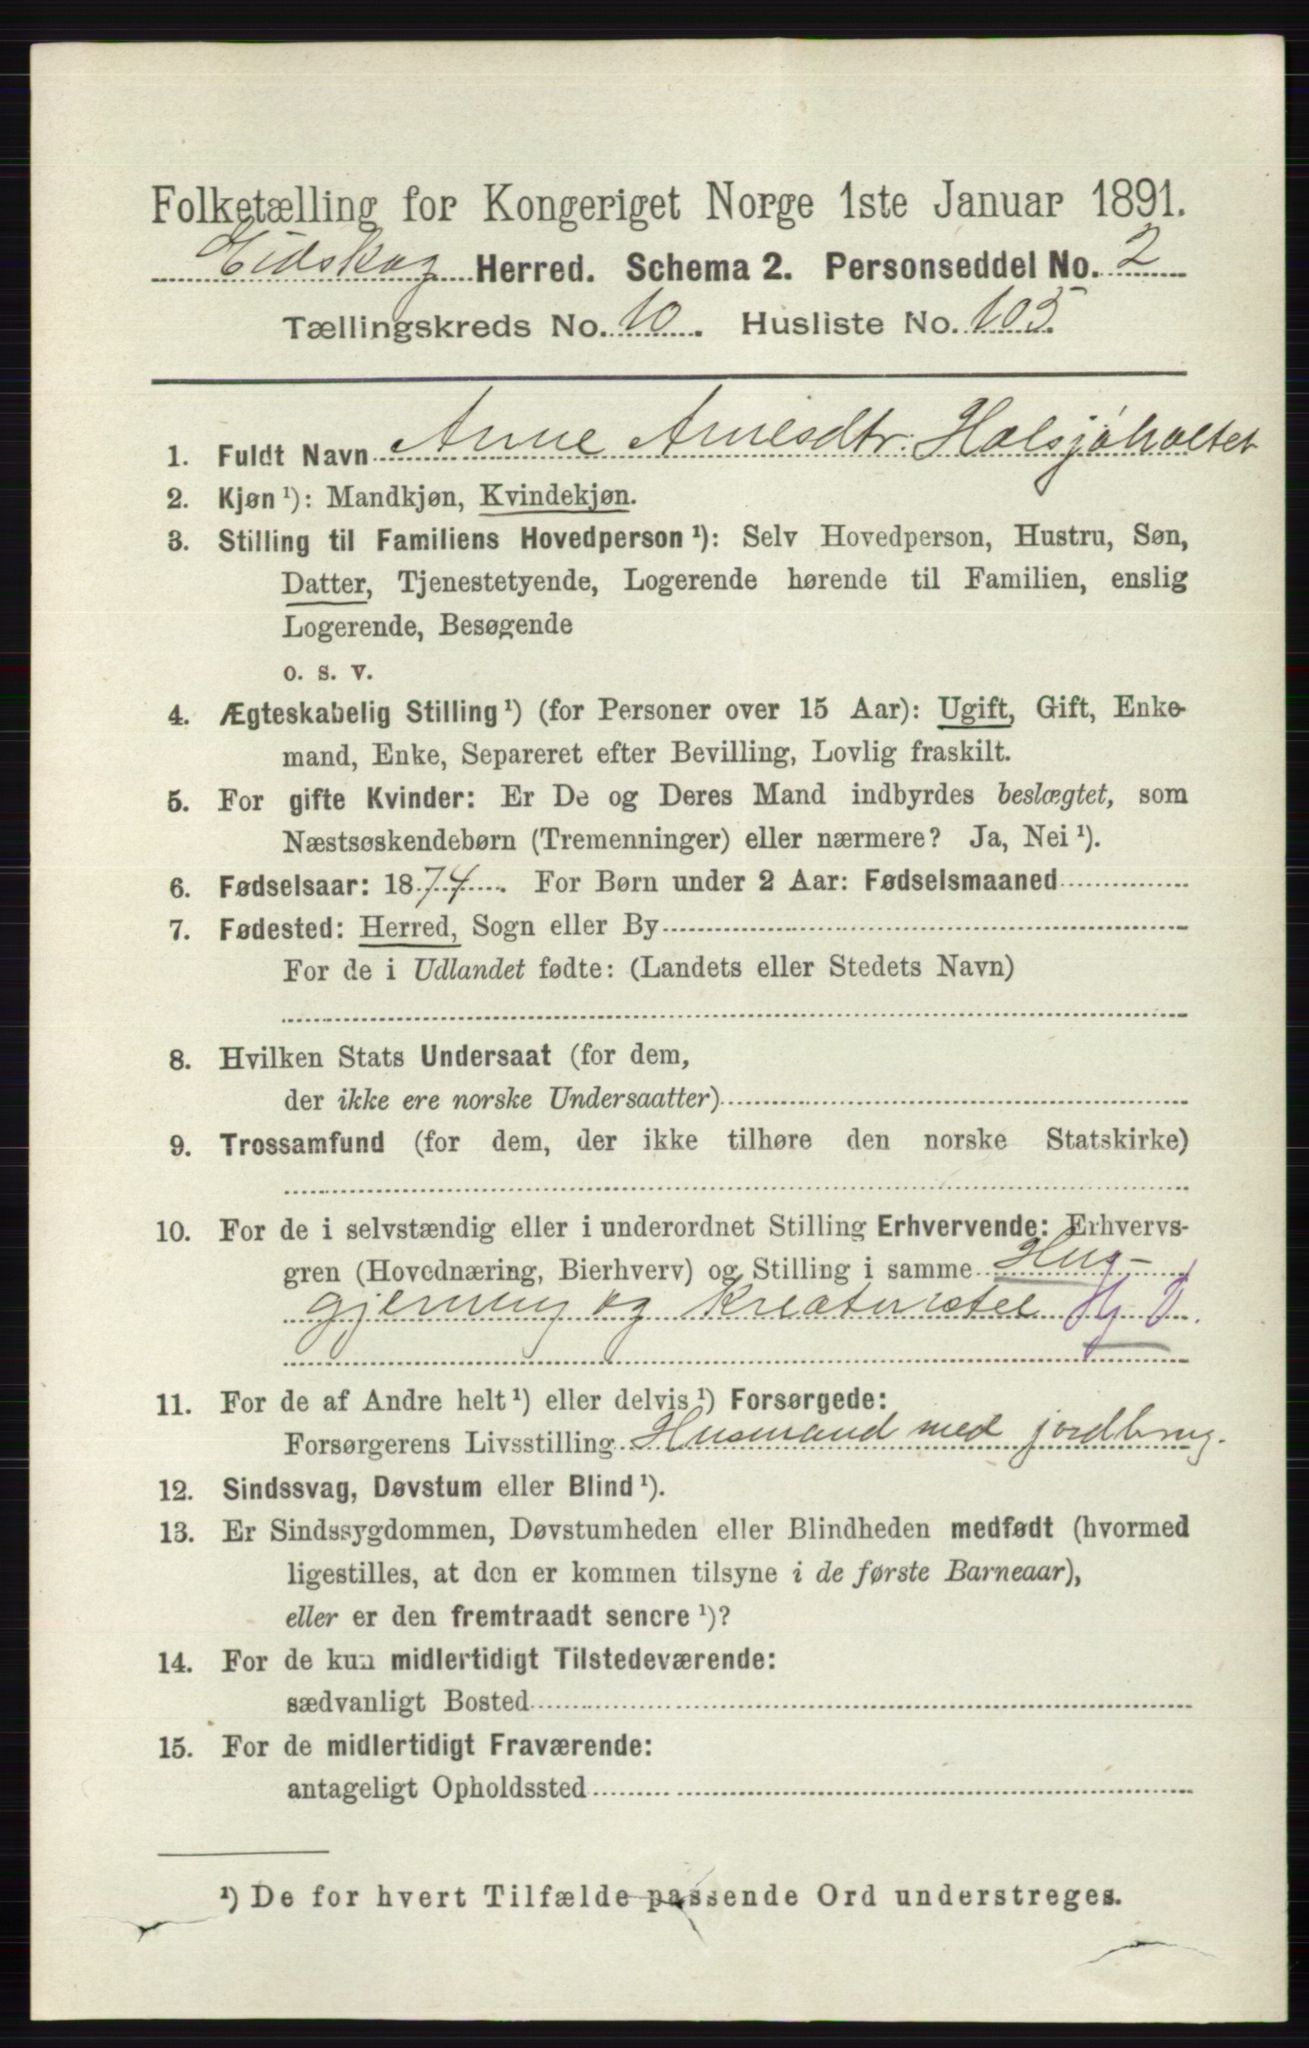 Folketælling for Kongeriget Norge 1ste Januar 1891.
Eidskog Herred. Schema 2. Personseddel No. 2
Tællingskreds No. 10. Husliste No. 105.
1. Fuldt Navn Anne Arnesdtr. Halsjøholtet
2. Kjøn ¹): Mandkjøn, Kvindekjøn.
3. Stilling til Familiens Hovedperson ¹): Selv Hovedperson, Hustru, Søn,
Datter, Tjenestetyende, Logerende hørende til Familien, enslig
Logerende, Besøgende
o. s. v.
4. Ægteskabelig Stilling ¹) (for Personer over 15 Aar): Ugift, Gift, Enke-
mand, Enke, Separeret efter Bevilling, Lovlig fraskilt.
5. For gifte Kvinder: Er De og Deres Mand indbyrdes beslægtet, som
Næstsøskendebørn (Tremenninger) eller nærmere? Ja, Nei ¹).
6. Fødselsaar: 1874. For Børn under 2 Aar: Fødselsmaaned
7. Fødested: Herred, Sogn eller By
For de i Udlandet fødte: (Landets eller Stedets Navn)
8. Hvilken Stats Undersaat (for dem,
der ikke ere norske Undersaatter)
9. Trossamfund (for dem, der ikke tilhøre den norske Statskirke)
10. For de i selvstændig eller i underordnet Stilling Erhvervende: Erhvervs-
gren (Hovednæring, Bierhverv) og Stilling i samme Hus-
gjerning og Kreaturstel
11. For de af Andre helt ¹) eller delvis ¹) Forsørgede:
Forsørgerens Livsstilling Husmand med jordbrug.
12. Sindssvag, Døvstum eller Blind ¹).
13. Er Sindssygdommen, Døvstumheden eller Blindheden medfødt (hvormed
ligestilles, at den er kommen tilsyne i de første Barneaar),
eller er den fremtraadt senere ¹)?
14. For de kun midlertidigt Tilstedeværende:
sædvanligt Bosted
15. For de midlertidigt Fraværende:
antageligt Opholdssted
¹) De for hvert Tilfælde passende Ord understreges.